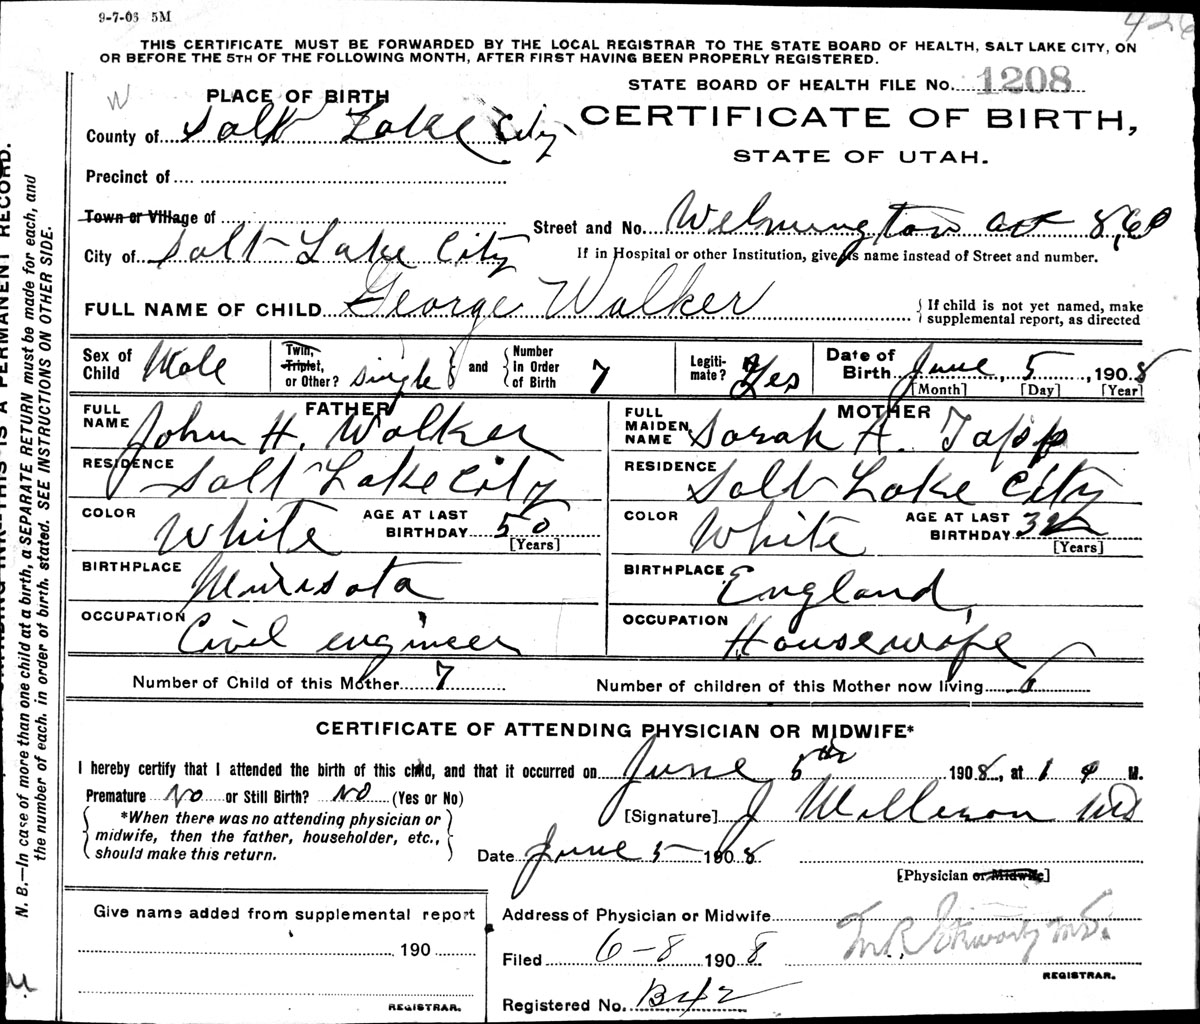 9-7-06 5M
426
THIS CERTIFICATE MUST BE FORWARDED BY THE LOCAL REGISTRAR TO THE STATE BOARD OF HEALTH, SALT LAKE CITY, ON
OR BEFORE THE 5TH OF THE FOLLOWING MONTH, AFTER FIRST HAVING BEEN PROPERLY REGISTERED.
STATE BOARD OF HEALTH FILE No. 1208
W
PLACE OF BIRTH
CERTIFICATE OF BIRTH,
County of Salt Lake City
STATE OF UTAH.
Precinct of
Town or Village of
Street and No. Welmington 860
City of Salt Lake City
If in Hospital or other Institution, give its name instead of Street and number.
FULL NAME OF CHILD George Walker
{ If child is not yet named, make
supplemental report, as directed
Sex of Child Male
Twin, Triplet, or Other? single and Number In Order of Birth 7
Legitimate? Yes
Date of Birth June, 5, 1908
[Month] [Day] [Year]
FATHER
FULL NAME John H. Walker
RESIDENCE Salt Lake City
COLOR White AGE AT LAST BIRTHDAY 50 [Years]
BIRTHPLACE Minisota
OCCUPATION Civil engineer
MOTHER
FULL MAIDEN NAME Sarah A. Tapp
RESIDENCE Salt Lake City
COLOR White AGE AT LAST BIRTHDAY 32 [Years]
BIRTHPLACE England,
OCCUPATION Housewife
Number of Child of this Mother 7
Number of children of this Mother now living
CERTIFICATE OF ATTENDING PHYSICIAN OR MIDWIFE*
I hereby certify that I attended the birth of this child, and that it occurred on June 5th 1908, at 1 M.
Premature No or Still Birth? No (Yes or No)
*When there was no attending physician or
midwife, then the father, householder, etc.,
should make this return.
[Signature] J MD
Date June 5 1908
[Physician or Midwife]
Give name added from supplemental report
190
REGISTRAR.
Address of Physician or Midwife
Filed 6-8 1908
M.D.
REGISTRAR.
Registered No. B42
PERMANENT RECORD.
N. B.—In case of more than one child at a birth, a SEPARATE RETURN must be made for each, and
the number of each, in order of birth, stated. SEE INSTRUCTIONS ON OTHER SIDE.